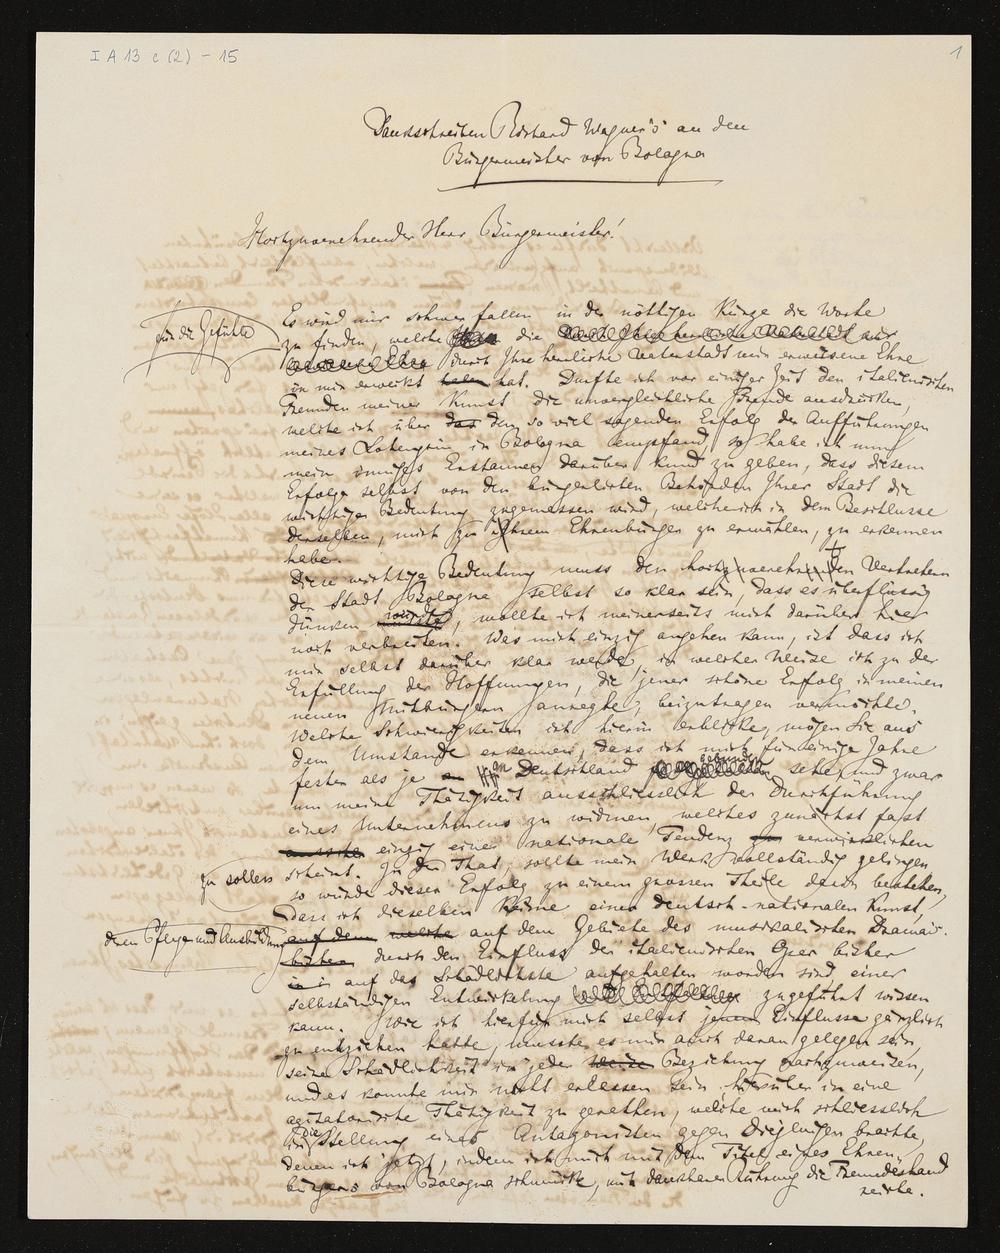 I A 13 c (2) - 15
1
Dankschreiben Richard Wagner's an den
Bürgermeister von Bologna
Hochzuverehrender Herr Bürgermeister!
Es wird mir schwer fallen in der nöthigen Kürze die Worte
für die Gefühle
zu finden, welche die
durch Ihre herrliche Vaterstadt mir erwiesene Ehre
in mir erweckt haben hat. Durfte ich vor einiger Zeit den italienischen
Freunden meiner Kunst die unvergleichliche Freude ausdrücken,
welche ich über das den so viel sagenden Erfolg der Aufführungen
meines Lohengrin in Bologna empfand, so habe ich nun
mein inniges Erstaunen darüber kund zu geben, dass diesem
Erfolge selbst von den bürgerlichen Behörden Ihrer Stadt die
wichtige Bedeutung zugemessen wird, welche ich in dem Beschlusse
derselben, mich zu Ihrem Ehrenbürger zu erwählen, zu erkennen
habe.
Diese wichtige Bedeutung muss den hochzuverehrenden Vertretern
der Stadt Bologna selbst so klar sein, dass es überflüssig
dünken würde, wollte ich meinerseits mich darüber hier
noch verbreiten. Was mich einzig angehen kann, ist dass ich
mir selbst darüber klar werde, in welcher Weise ich zu der
Erfüllung der Hoffnungen, die jener schöne Erfolg in meinen
neuen Mitbürgern anregte, beizutragen vermöchte.
Welche Schwierigkeiten ich hierin erblicke, mögen Sie aus
dem Umstande erkennen, dass ich mich für einige Jahre
gebunden
fester als je an Deutschland sehe, und zwar
um meine Thätigkeit ausschliesslich der Durchführung
eines Unternehmens zu widmen, welches zunächst fast
einzig eine nationale Tendenz zu verwirklichen
zu sollen
scheint. In der That, sollte mein Werk vollständig gelingen,
so würde dieser Erfolg zu einem grossen Theile darin bestehen,
dass ich dieselben Keime einer deutsch-nationalen Kunst,
deren Pflege und Ausbildung
auf dem welche auf dem Gebiete des musikalischen Dramas
bisher durch den Einfluss der italienischen Oper bisher
auf das Schädlichste aufgehalten worden sind einer
selbständigen Entwickelung zugeführt wissen
kann. Wie ich hierfür mich selbst jenem Einflusse gänzlich
zu entziehen hatte, musste es mir auch daran gelegen sein,
seine Schädlichkeit in jeder Weise Beziehung nachzuweisen,
und es konnte mir nicht erlassen sein, hierüber in eine
agitatorische Thätigkeit zu gerathen, welche mich schliesslich
in die Stellung eines Antagonisten gegen Diejenigen brachte,
denen ich jetzt, indem ich mich mit dem Titel eines Ehren-
bürgers von Bologna schmücke, mit dankbarer Rührung die Freundeshand
reiche.